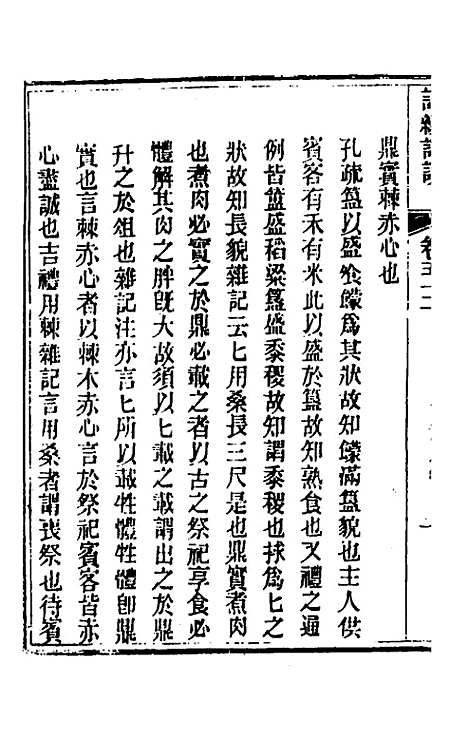 鼎實棘赤心也
孔疏簋以盛飧饛爲其狀故知饛滿簋貌也主人供
賓客有禾有米此以盛於簋故知熟食也又禮之通
例皆簠盛稻粱簋盛黍稷故知謂黍稷也捄爲匕之
狀故知長貌雜記云匕用桑長三尺是也鼎實煮肉
也煮肉必實之於鼎必載之者以古之祭祀享食必
體解其肉之胖旣大故須以匕載之載謂出之於鼎
升之於俎也雜記注亦言匕所以載牲體牲體卽鼎
實也言棘赤心者以棘木赤心言於祭祀賓客皆赤
心盡誠也吉禮用棘雜記言用桑者謂喪祭也待賓